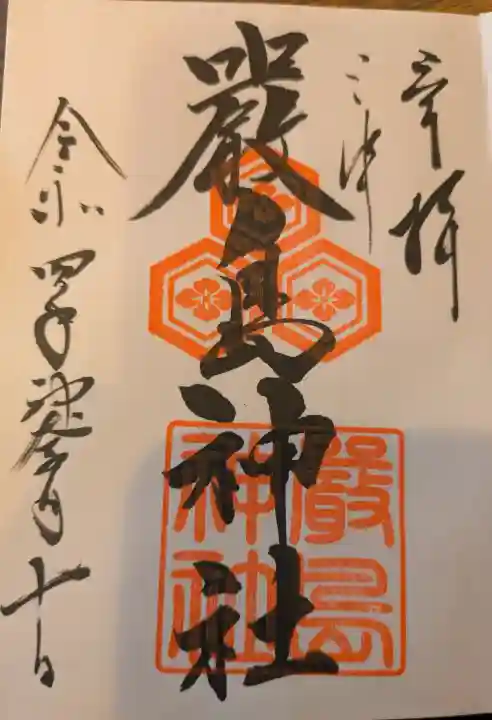 奉拝
三津
嚴島神社
令和四年神月十日
嚴島神社